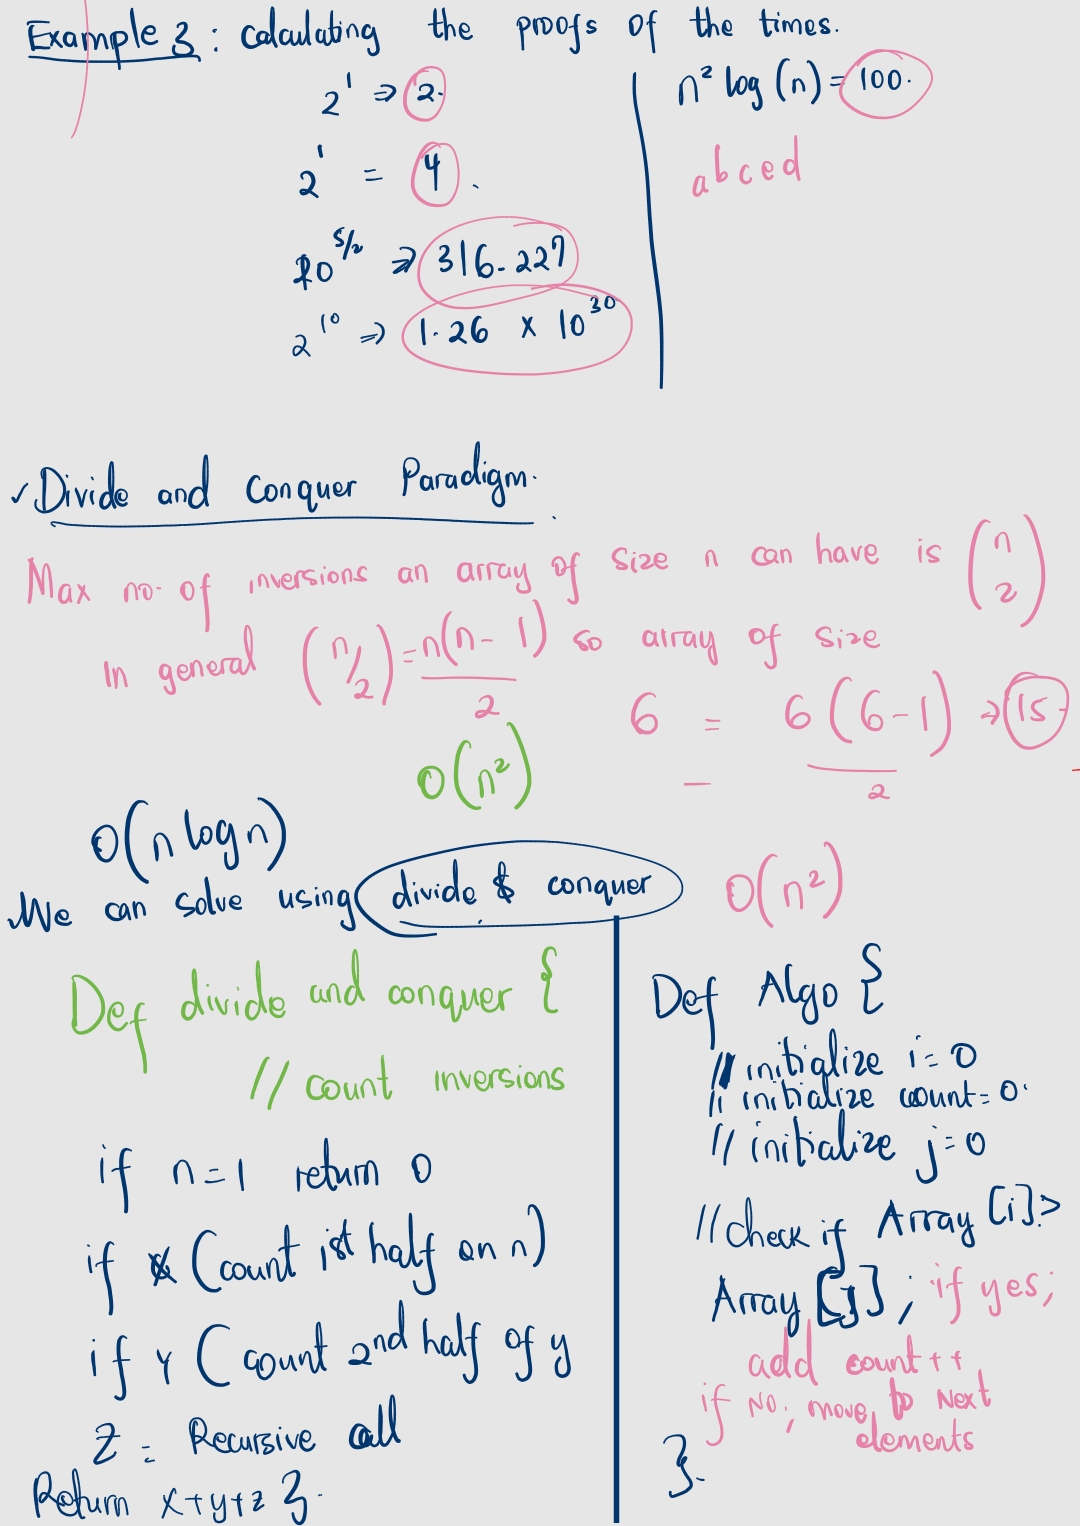 Example 3: calculating the proofs of the times.
2^1 ⇒ 2.
2^1 = 4.
10^5/2 ⇒ 316.227
2^10 ⇒ 1.26 x 10^30
n² log (n) = 100.
abced
✓ Divide and Conquer Paradigm.
Max no. of inversions an array of size n can have is (n 2)
In general (n/2) = n(n-1)/2 so array of size
6 = 6(6-1)/2 ⇒ 15
O(n²)
O(n log n)
We can solve using divide & conquer
O(n²)
Def divide and conquer {
// count inversions
if n=1 return 0
if x (count 1st half on n)
if y ( count 2nd half of y
Z = Recursive call
Return x+y+z }.
Def Algo {
// initialize i=0
// initialize count=0.
// initialize j=0
// check if Array [i] >
Array [j] ; if yes;
add count++
if No; move to Next
elements
}.